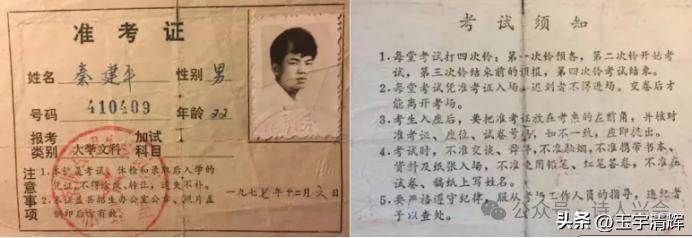 准考证
姓名 秦建平 性别 男
号码 410409 年龄 22
报考类别 大学文科 加试科目
注意事项
1.本证是考试、体检和录取后入学的
凭证,不得涂改、转让,遗失不补。
2.本证盖县招生办公室公章、照片盖
钢印后方有效。
一九七七年十二月六日
考试须知
1.每堂考试打四次铃:第一次铃预备,第二次铃开始考
试,第三次铃结束前的预报,第四次铃考试结束。
2.每堂考试凭准考证入场,迟到者不得进场。交卷后才
能离开考场。
3.考生入座后,要把准考证放在考桌的左前角,并核对
准考证、座位、试卷号码,如不一致,应即提出。
4.考试时,不准交谈、舞弊,不准抽烟,不准携带书本、
资料及纸张入场,不准使用铅笔、红笔答卷,不准在
试卷、稿纸上写姓名。
5.要严格遵守纪律,服从考场工作人员的指导,违纪者
予以查处。
公众号·诗人兴会
头条@王宇清辉